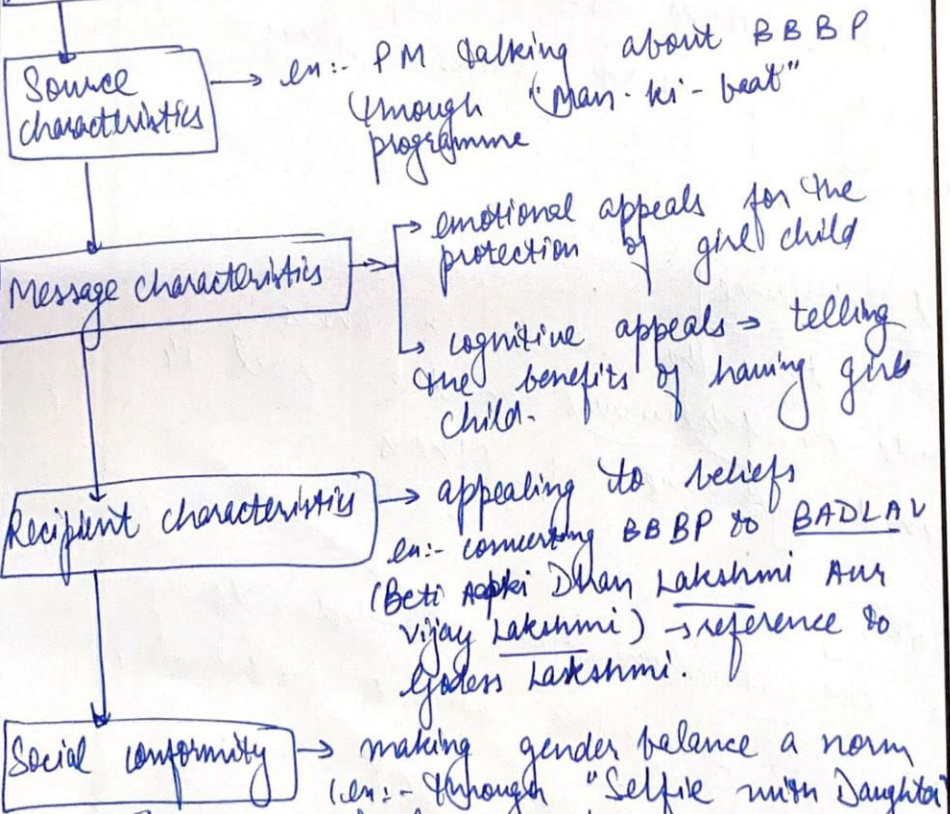 Source
characteristics
en:- PM talking about BBBP
through "Man-ki-baat"
programme
Message characteristics
emotional appeals for the
protection of girl child
cognitive appeals → telling
the benefits of having girls
child.
Recipient characteristics
appealing to beliefs
en:- converting BBBP to BADLAV
(Beti Aapki Dhan Lakshmi Aur
Vijay Lakshmi) → reference to
Godess Lakshmi.
Social conformity
making gender balance a norm
(en:- through "Selfie with Daughter"